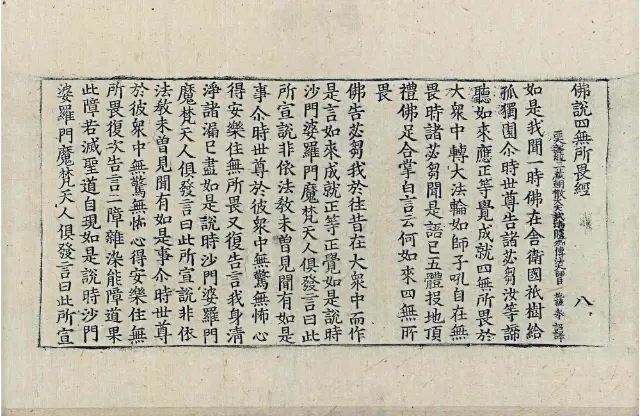 佛說四無所畏經 八
三藏朝散大夫試鴻臚傳法大師臣施護奉 詔譯
如是我聞一時佛在舍衛國祇樹給
孤獨園尒時世尊告諸苾芻汝等諦
聽如來應正等覺成就四無所畏於
大衆中轉大法輪如師子吼自在無
畏時諸苾芻聞是語已五體投地頂
禮佛足合掌白言云何如來四無所
畏
佛告苾芻我於往昔在大衆中而作
是言如來成就正等正覺如是說時
沙門婆羅門魔梵天人俱發言曰此
所宣說非依法教未曽見聞有如是
事尒時世尊於彼衆中無驚無怖心
得安樂住無所畏又復告言我身清
淨諸漏已盡如是說時沙門婆羅門
魔梵天人俱發言曰此所宣說非依
法教未曽見聞有如是事尒時世尊
於彼衆中無驚無怖心得安樂住無
所畏復次告言二障雜染能障道果
此障若滅聖道自現如是說時沙門
婆羅門魔梵天人俱發言曰此所宣